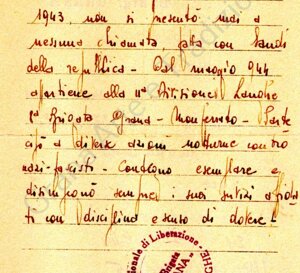 1943, non si presentò mai a
nessuna chiamata, fatta con bandi
della repubblica - Dal maggio 944
appartiene alla IIª Divisione Langhe
Iª Brigata Grana - Monferrato - Parte
cipò a diverse azioni notturne contro
nazi-fascisti - Contegno esemplare e
disimpegnò sempre i suoi servizi affida
ti con disciplina e senso di dovere!
zionale di Liberazione
Brigata